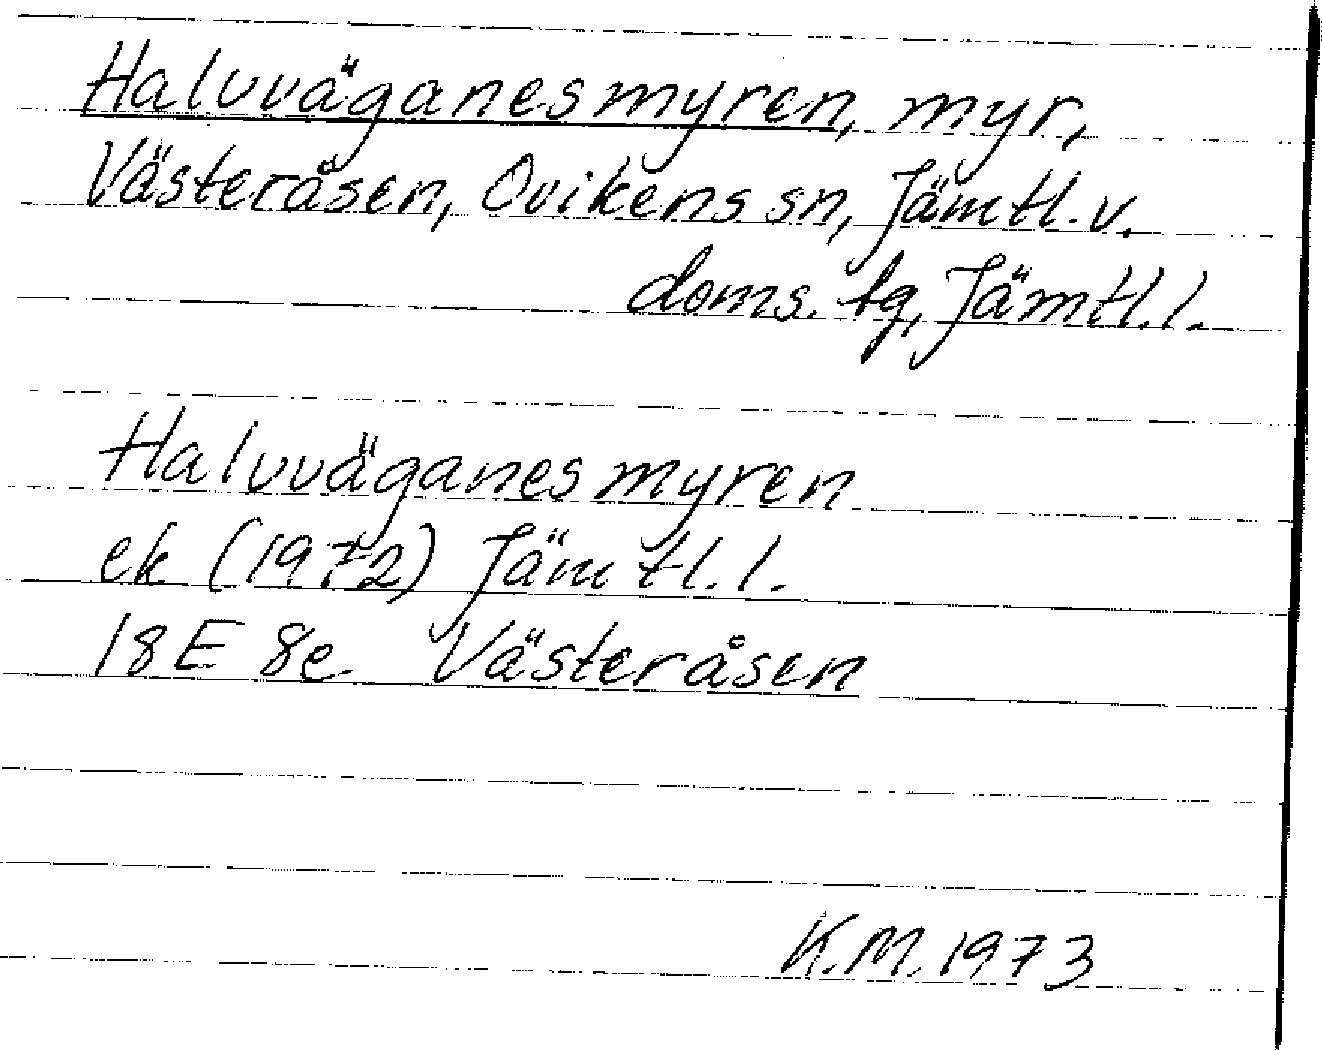 Halvväganesmyren, myr,
Västeråsen, Ovikens sn, Jämtl. v.
doms. tg, Jämtl. l.
Halvväganesmyren
ek (1972) Jämtl. l.
18 E 8e Västeråsen
K.M. 1973